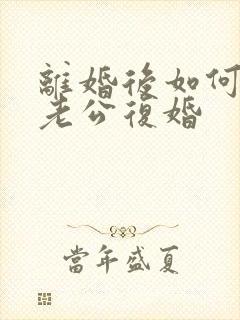 離婚後如何
老公復婚
當年盛夏